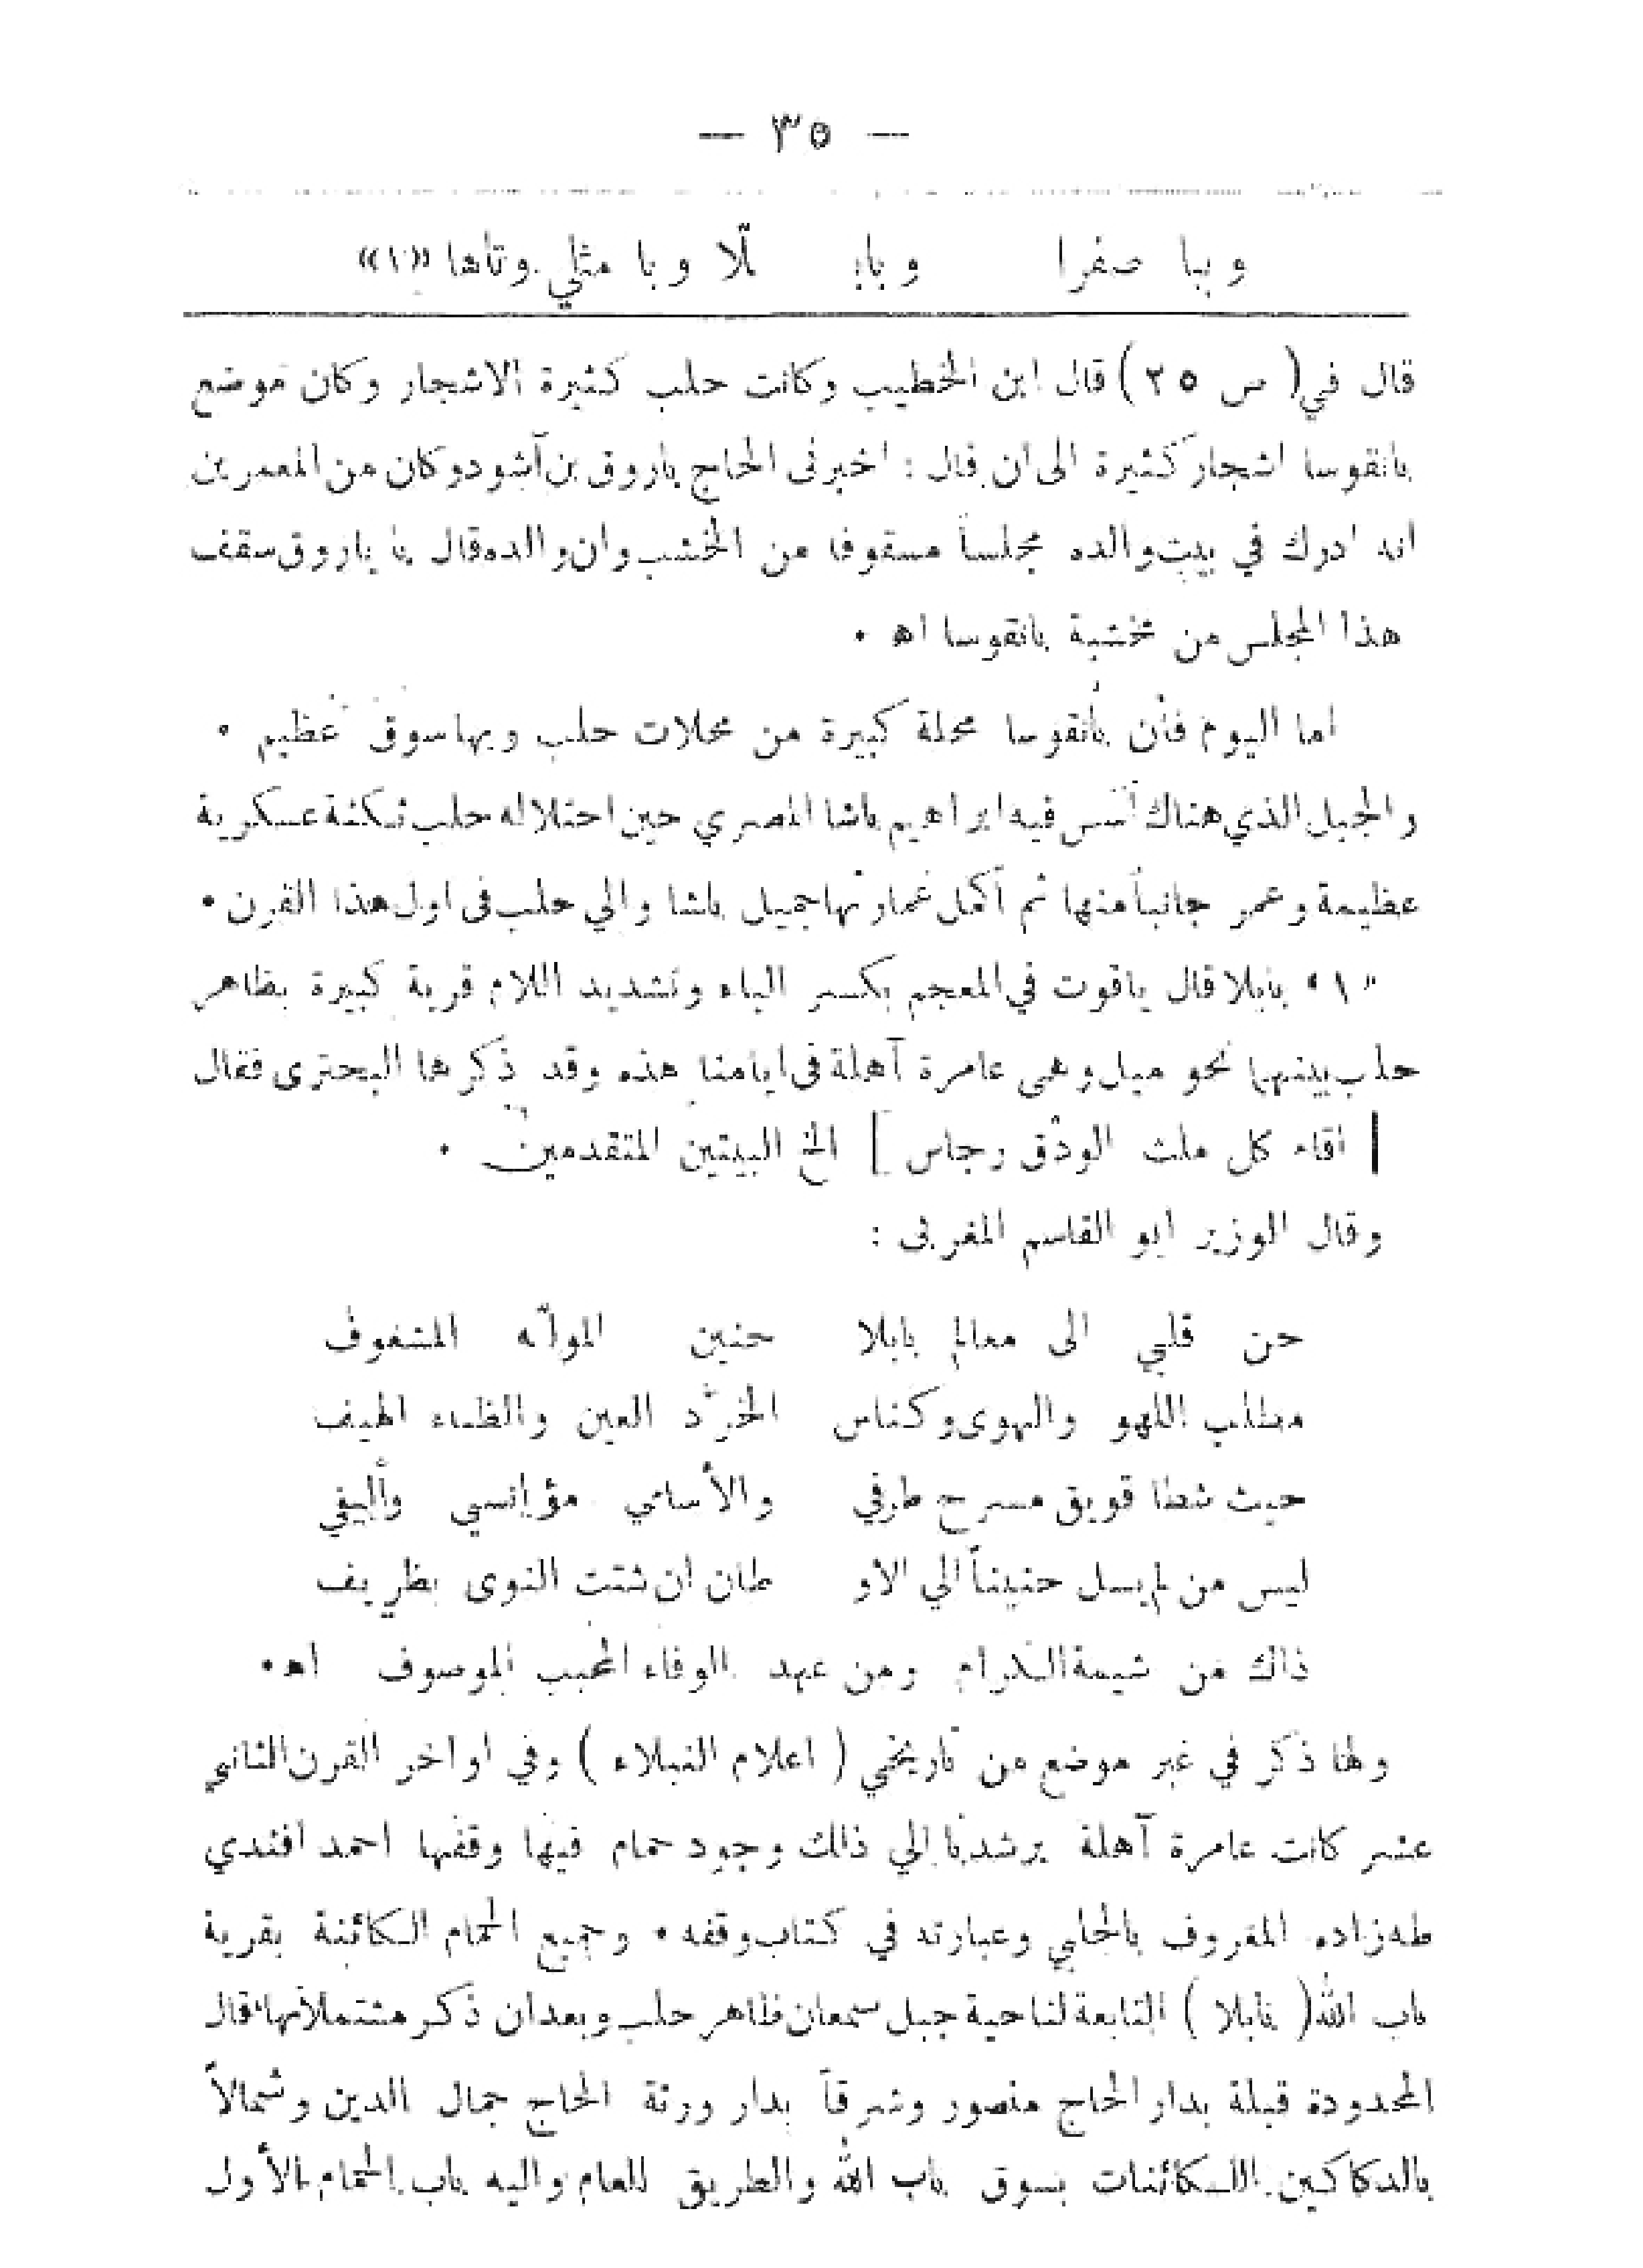 — ٣٥ —
وببا صفرا وبابـ ـلّا وبا مثلي وتاها «١»
قال في ( ص ٢٥ ) قال ابن الخطيب وكانت حلب كثيرة الاشجار وكان موضع
بانقوسا اشجار كثيرة الى ان قال : اخبرنى الحاج ياروق بن آشود وكان من المعمرين
انه ادرك في بيت والده مجلساً مسقوفا من الخشب وان والده قال يا ياروق سقف
هذا المجلس من خشبة بانقوسا اه ٠
اما اليوم فأن بانقوسا محلة كبيرة من محلات حلب وبها سوق عظيم ٠
والجبل الذي هناك أسس فيه ابراهيم باشا المصري حين احتلاله حلب ثكنة عسكرية
عظيمة وعمر جانباً منها ثم أكمل عمارتها جميل باشا والي حلب فى اول هذا القرن ٠
«١» بابلا قال ياقوت في المعجم بكسر الباء وتشديد اللام قرية كبيرة بظاهر
حلب بينهما نحو ميل وهى عامرة آهلة فى ايامنا هذه وقد ذكرها البحترى فقال
[ اقاء كل ملث الودق رجاس ] الخ البيتين المتقدمين ٠
وقال الوزير ابو القاسم المغربى :
حن قلبي الى معالم بابلا حنين المولّه المشغوف
مطلب اللهو والهوى وكناس الخرّد العين والظباء الهيف
حيث شطا قويق مسرح طرفي والأسامي مؤانسي وأليفي
ليس من لم يسل حنيناً الي الاو طان ان شتت النوى بظريف
ذاك من شيمة الكرام ومن عهد الوفاء المحبب الموصوف اه٠
ولها ذكر في غير موضع من تاريخي ( اعلام النبلاء ) وفي اواخر القرن الثاني
عشر كانت عامرة آهلة يرشدنا الي ذلك وجود حمام فيها وقفها احمد افندي
طه زاده المعروف بالجلبي وعبارته في كتاب وقفه ٠ وجميع الحمام الكائنة بقرية
باب الله ( بابلا ) التابعة لناحية جبل سمعان ظاهر حلب وبعد ان ذكر مشتملاتها قال
المحدودة قبلة بدار الحاج منصور وشرقاً بدار ورثة الحاج جمال الدين وشمالاً
بالدكاكين الكائنات بسوق باب الله والطريق العام واليه باب الحمام الأول